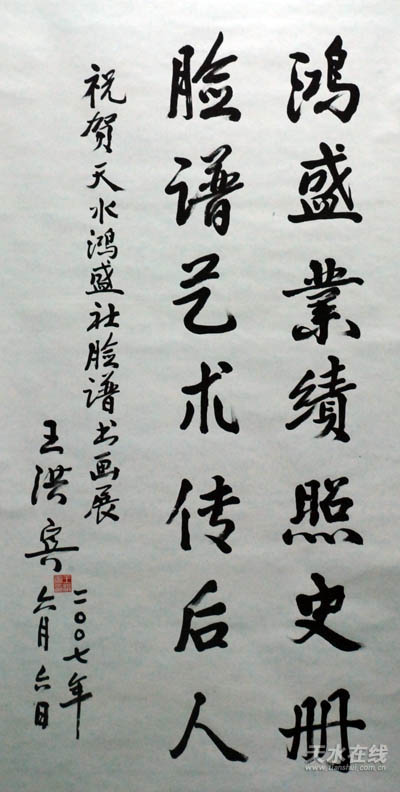 鸿盛業績照史册
脸谱艺术传后人
祝贺天水鸿盛社脸谱书画展
王洪宾
二〇〇七年
六月六日
天水在线
www.tianshui.com.cn